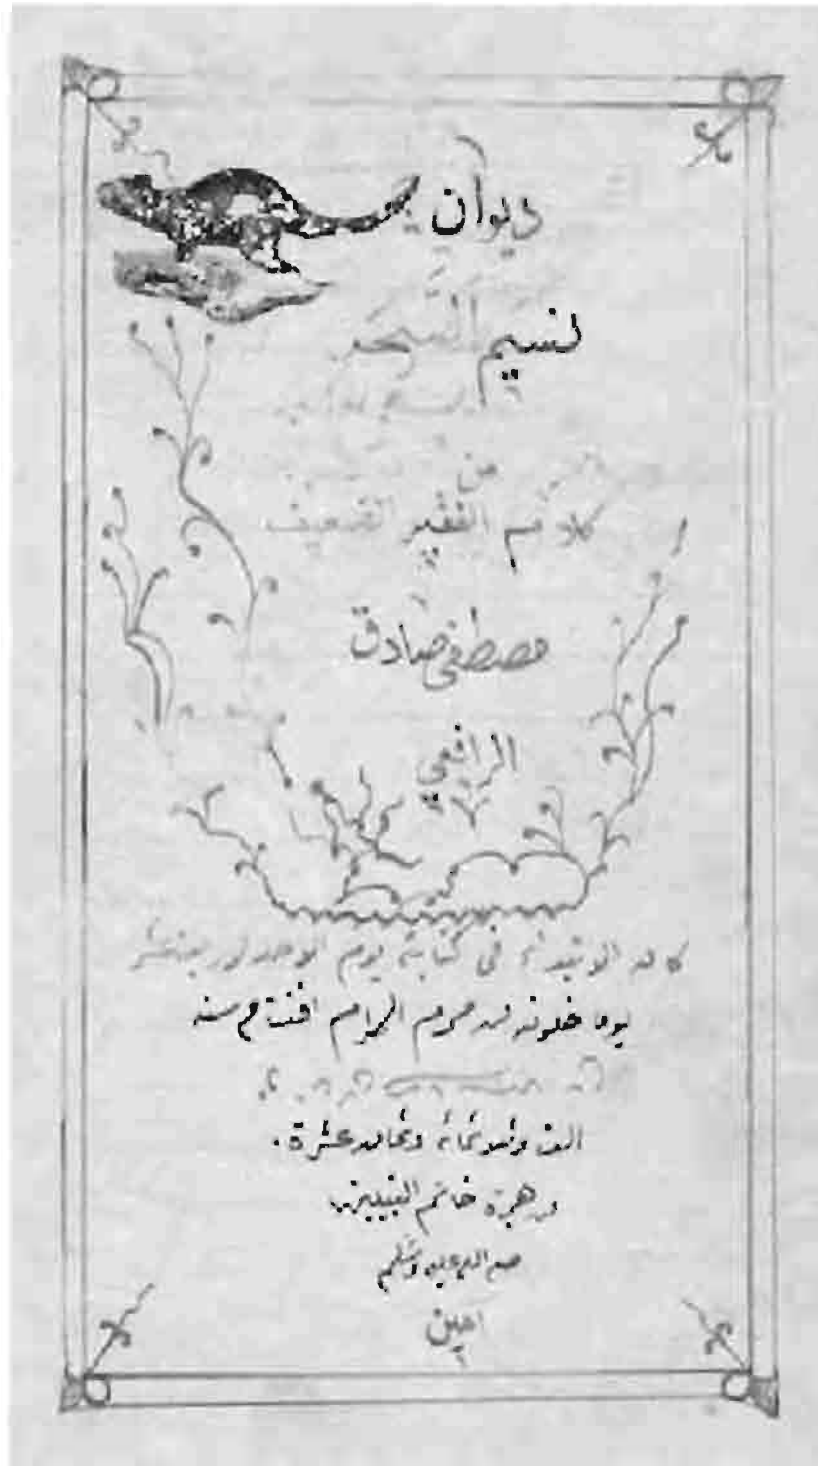 ديوان
نسيم السَّحَر
من
كلام الفقير الضعيف
مصطفى صادق
الرافعي
كان الابتداء في كتابته يوم الاحد لاربعة عشر
يوما خلون من محرم الحرام افتتاح سنه
الف وثلاثمائة وثمان عشرة.
من هجرة خاتم النبيين
صلى الله عليه وسلم
امين